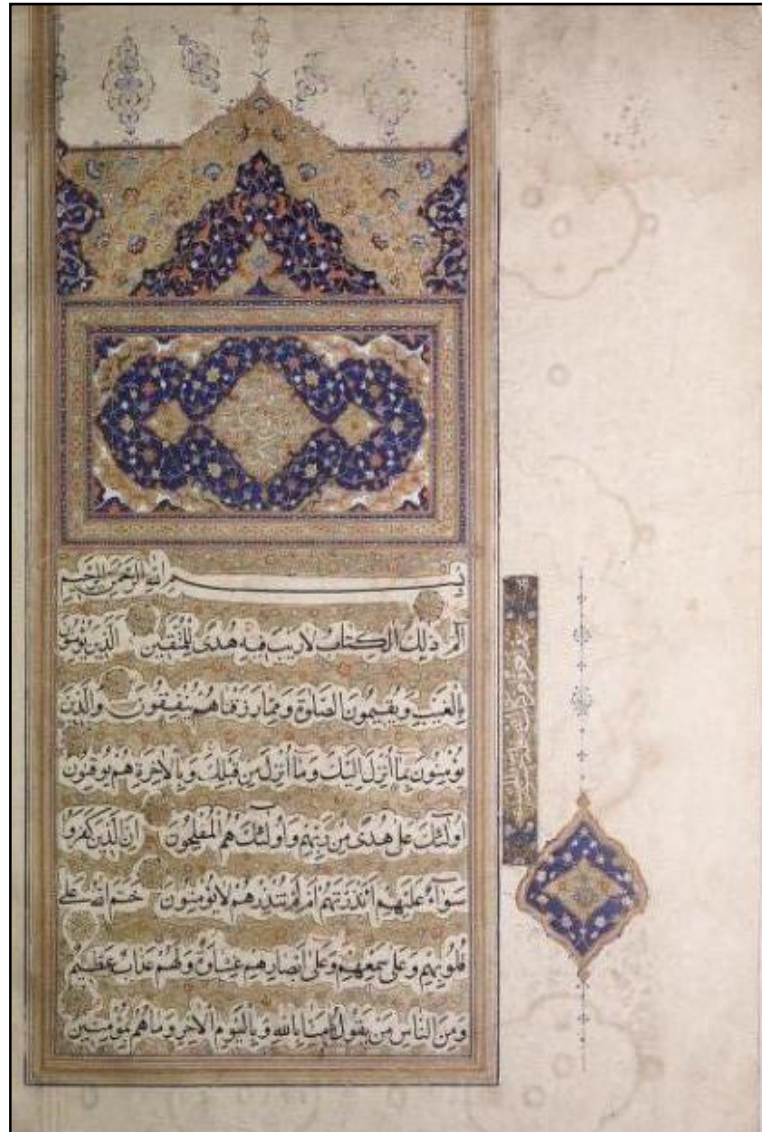 بسم الله الرحمن الرحيم
الم ذلك الكتاب لاريب فيه هدى للمتقين الذين يؤمنون
بالغيب ويقيمون الصلوة ومما رزقناهم ينفقون والذين
يؤمنون بما أنزل اليك وما أنزل من قبلك وبالاخرة هم يوقنون
اولئك على هدى من ربهم واولئك هم المفلحون ان الذين كفروا
سواء عليهم أنذرتهم ام لم تنذرهم لا يؤمنون ختم الله على
قلوبهم وعلى سمعهم وعلى أبصارهم غشاوة ولهم عذاب عظيم
ومن الناس من يقول امنا بالله وباليوم الاخر وما هم بمؤمنين